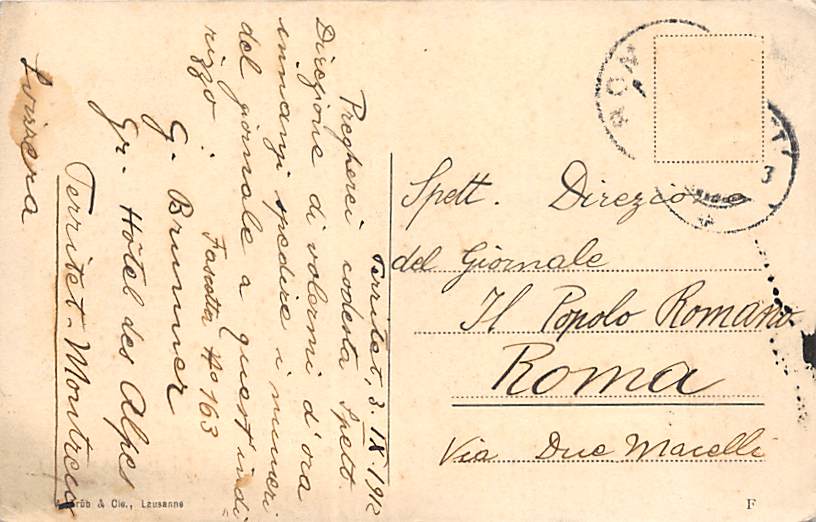 Territet, 3. IX. 1912
Pregherei codesta Spett.
Direzione di volermi d'ora
innanzi spedire i numeri
del giornale a quest'indi
rizzo:
Fascetta No 163
G. Brunner
Gr. Hôtel des Alpes
Territet-Montreux
Svizzera
Spett. Direzione
del Giornale
Il Popolo Romano
Roma
Via Due Macelli
& Cie., Lausanne
F
3